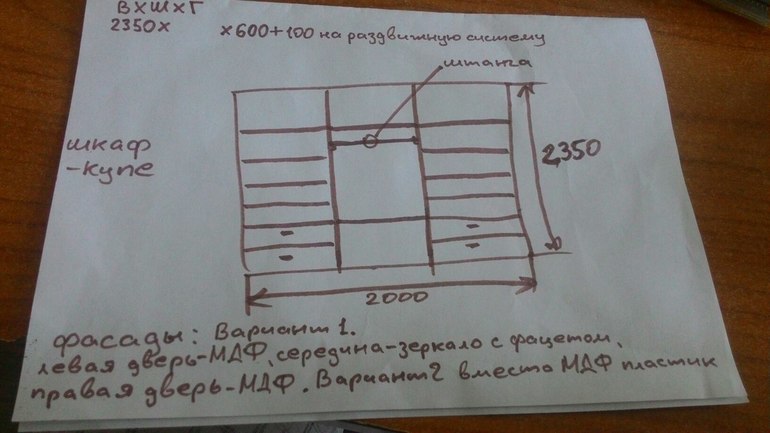 ВхШхГ
2350х х600+100 на раздвижную систему
штанга
шкаф
-купе
2350
2000
фасады: Вариант 1.
левая дверь-МДФ, середина-зеркало с фацетом,
правая дверь-МДФ. Вариант 2 вместо МДФ пластик